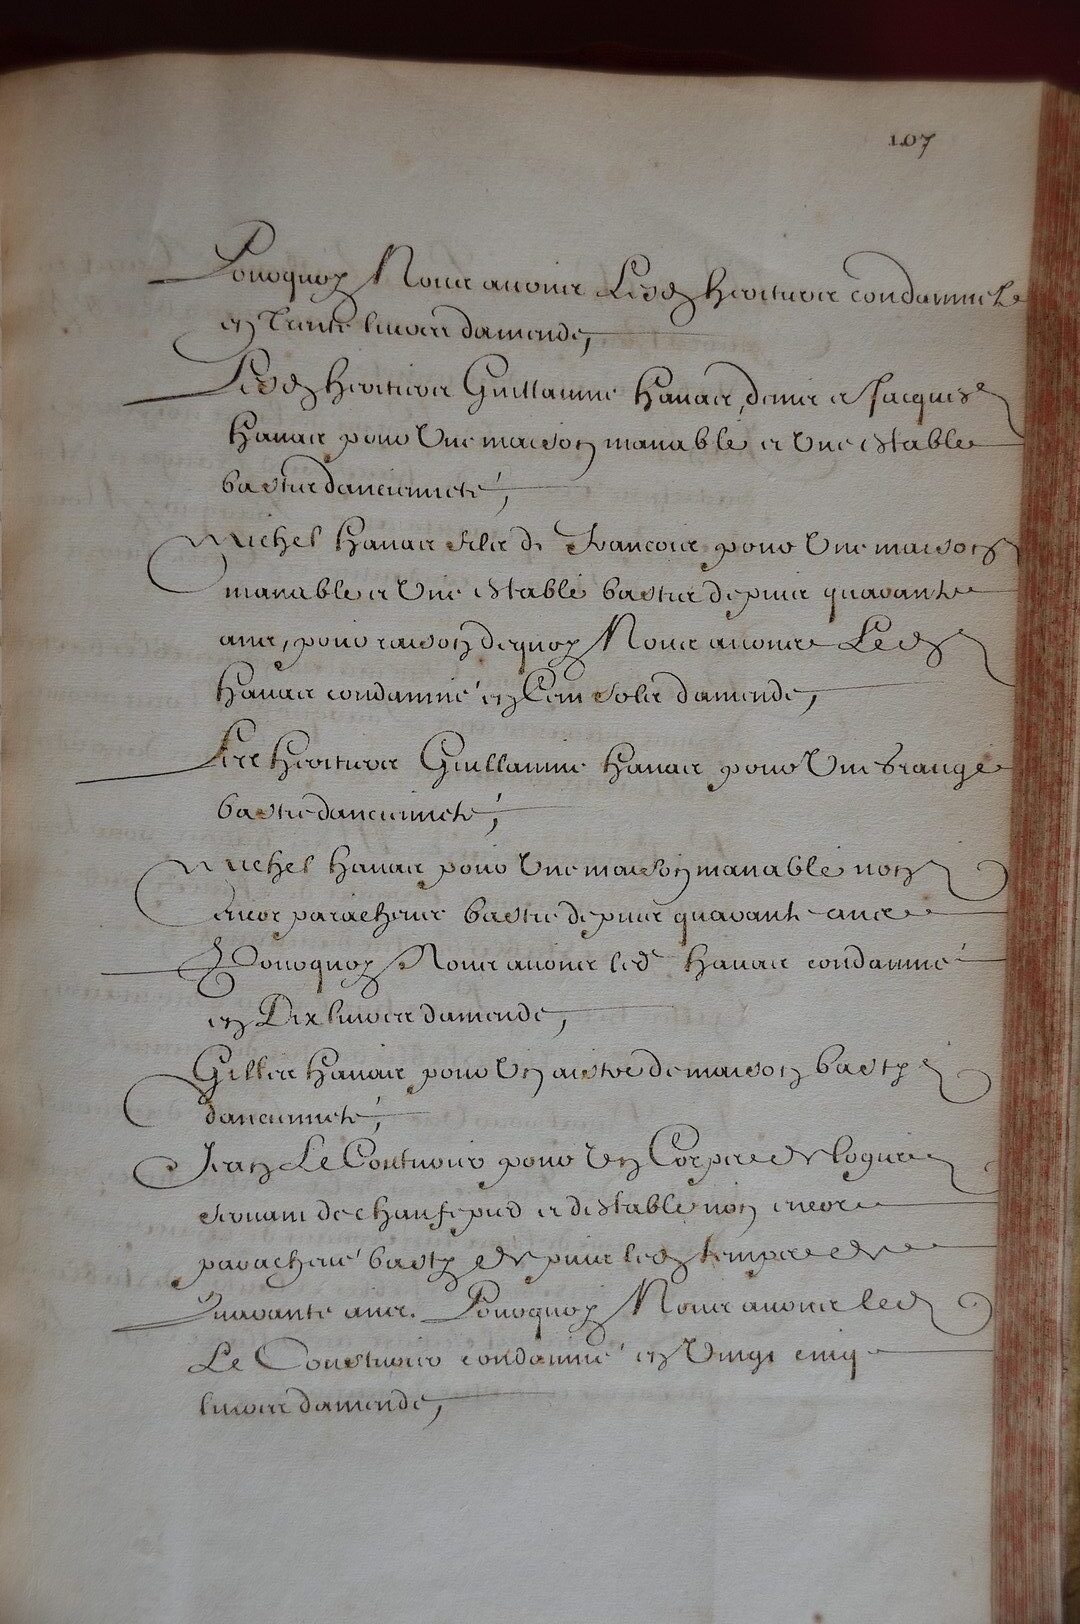 107
Pourquoy Nous auons Lesd heritiers condamnés
en Trente liures damende,
Lesd heritiers Guillaume Hauais, denis et Jacques
Hauais pour Une maison manable et Une estable
basties dancienneté,
Michel Hauais filz de Francois pour Une maison
manable et Une estable basties depuis quarante
ans, pour raison dequoy Nous auons Led
Hauais condamné en Cent solz damende,
Les heritiers Guillaume Hauais pour Une grange
bastie dancienneté,
Michel Hauais pour Une maison manable non
encor paracheuee bastie depuis quarante ans
Pourquoy Nous auons led Hauais condamné
en Dix liures damende,
Gilles Hauais pour Un aistre de maison basty
dancienneté,
Jean Le Cousturier pour Un Corps de logis
seruant de chaufepied et destable non encore
paracheué basty depuis led temps de
Quarante ans. Pourquoy Nous auons led
Le Cousturier condamné en Vingt cinq
liures damende,